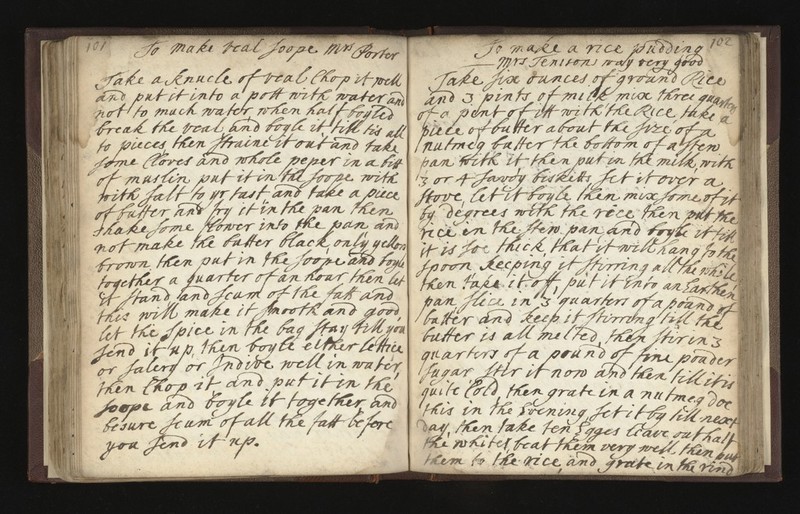 101
To make veal soope Mrs Porter
Take a knucle of veal Chop it well
and put it into a pott with water and
not to much water when half boyled
break the veal and boyle it till tis all
to pieces then straine it out and take
some Cloves and whole peper in a bitt
of muslin put it in the soope with
with salt to yr tast and take a piece
of butter and fry it in the pan then
shake some flower into the pan and
not make the butter black only yellow
brown then put in the soope and boyle
together a quarter of an hour then let
it stand and scum of the fatt and
this will make it smooth and good
let the spice in the bag stay till you
send it up, then boyle either lettice
or salery or Indive well in water
then Chop it and put it in the
soope and boyle it together and
besure scum of all the fatt before
you send it up.
102
To make a rice pudding
Mrs Tenisons way very good
Take six ounces of ground Rice
and 3 pints of milk mix three quarters
of a pent of itt with the Rice, take a
piece of butter about the size of a
nutmeg butter the bottom of a stew
pan with it then put in the milk with
3 or 4 savoy bisketts set it over a
stove, let it boyle then mix some of it
by degrees with the rice then put the
rice in the stew pan and boyle it till
it is soe thick that it will hang to the
spoon keeping it stirring all the while
then take it off, put it into an Earthen
pan slice in 3 quarters of a pound of
butter and keep it stirring till the
butter is all melted, then stir in 3
quarters of a pound of fine pouder
sugar stir it now and then till it is
quite Cold then grate in a nutmeg doe
this in the Evening set it by till next
day, then take ten Egges leave out half
the whites beat them very well then put
them to the rice, and grate in the rind